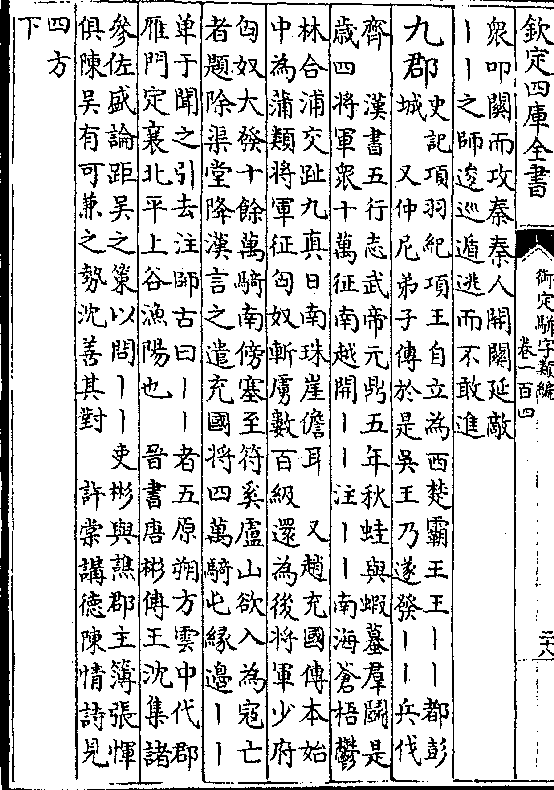 欽定四庫全書
御定駢字類編
卷一百四
衆叩關而攻秦秦人開關延敵
丨丨之師逡巡遁逃而不敢進
九郡 史記項羽紀項王自立為西楚霸王王丨丨都彭
城　又仲尼弟子傳於是吳王乃遂發丨丨兵伐
齊　漢書五行志武帝元鼎五年秋蛙與蝦蟇羣鬭是
歲四將軍衆十萬征南越開丨丨注丨丨南海蒼梧鬱
林合浦交趾九真日南珠崖儋耳　又趙充國傳本始
中為蒲類將軍征匈奴斬虜數百級還為後將軍少府
匈奴大發十餘萬騎南傍塞至符奚廬山欲入為寇亡
者題除渠堂降漢言之遣充國將四萬騎屯緣邊丨丨
單于聞之引去注師古曰丨丨者五原朔方雲中代郡
雁門定襄北平上谷漁陽也　晉書唐彬傳王沈集諸
參佐盛論距吳之策以問丨丨吏彬與譙郡主簿張惲
俱陳吳有可兼之勢沈善其對　許棠講德陳情詩見
四方
下